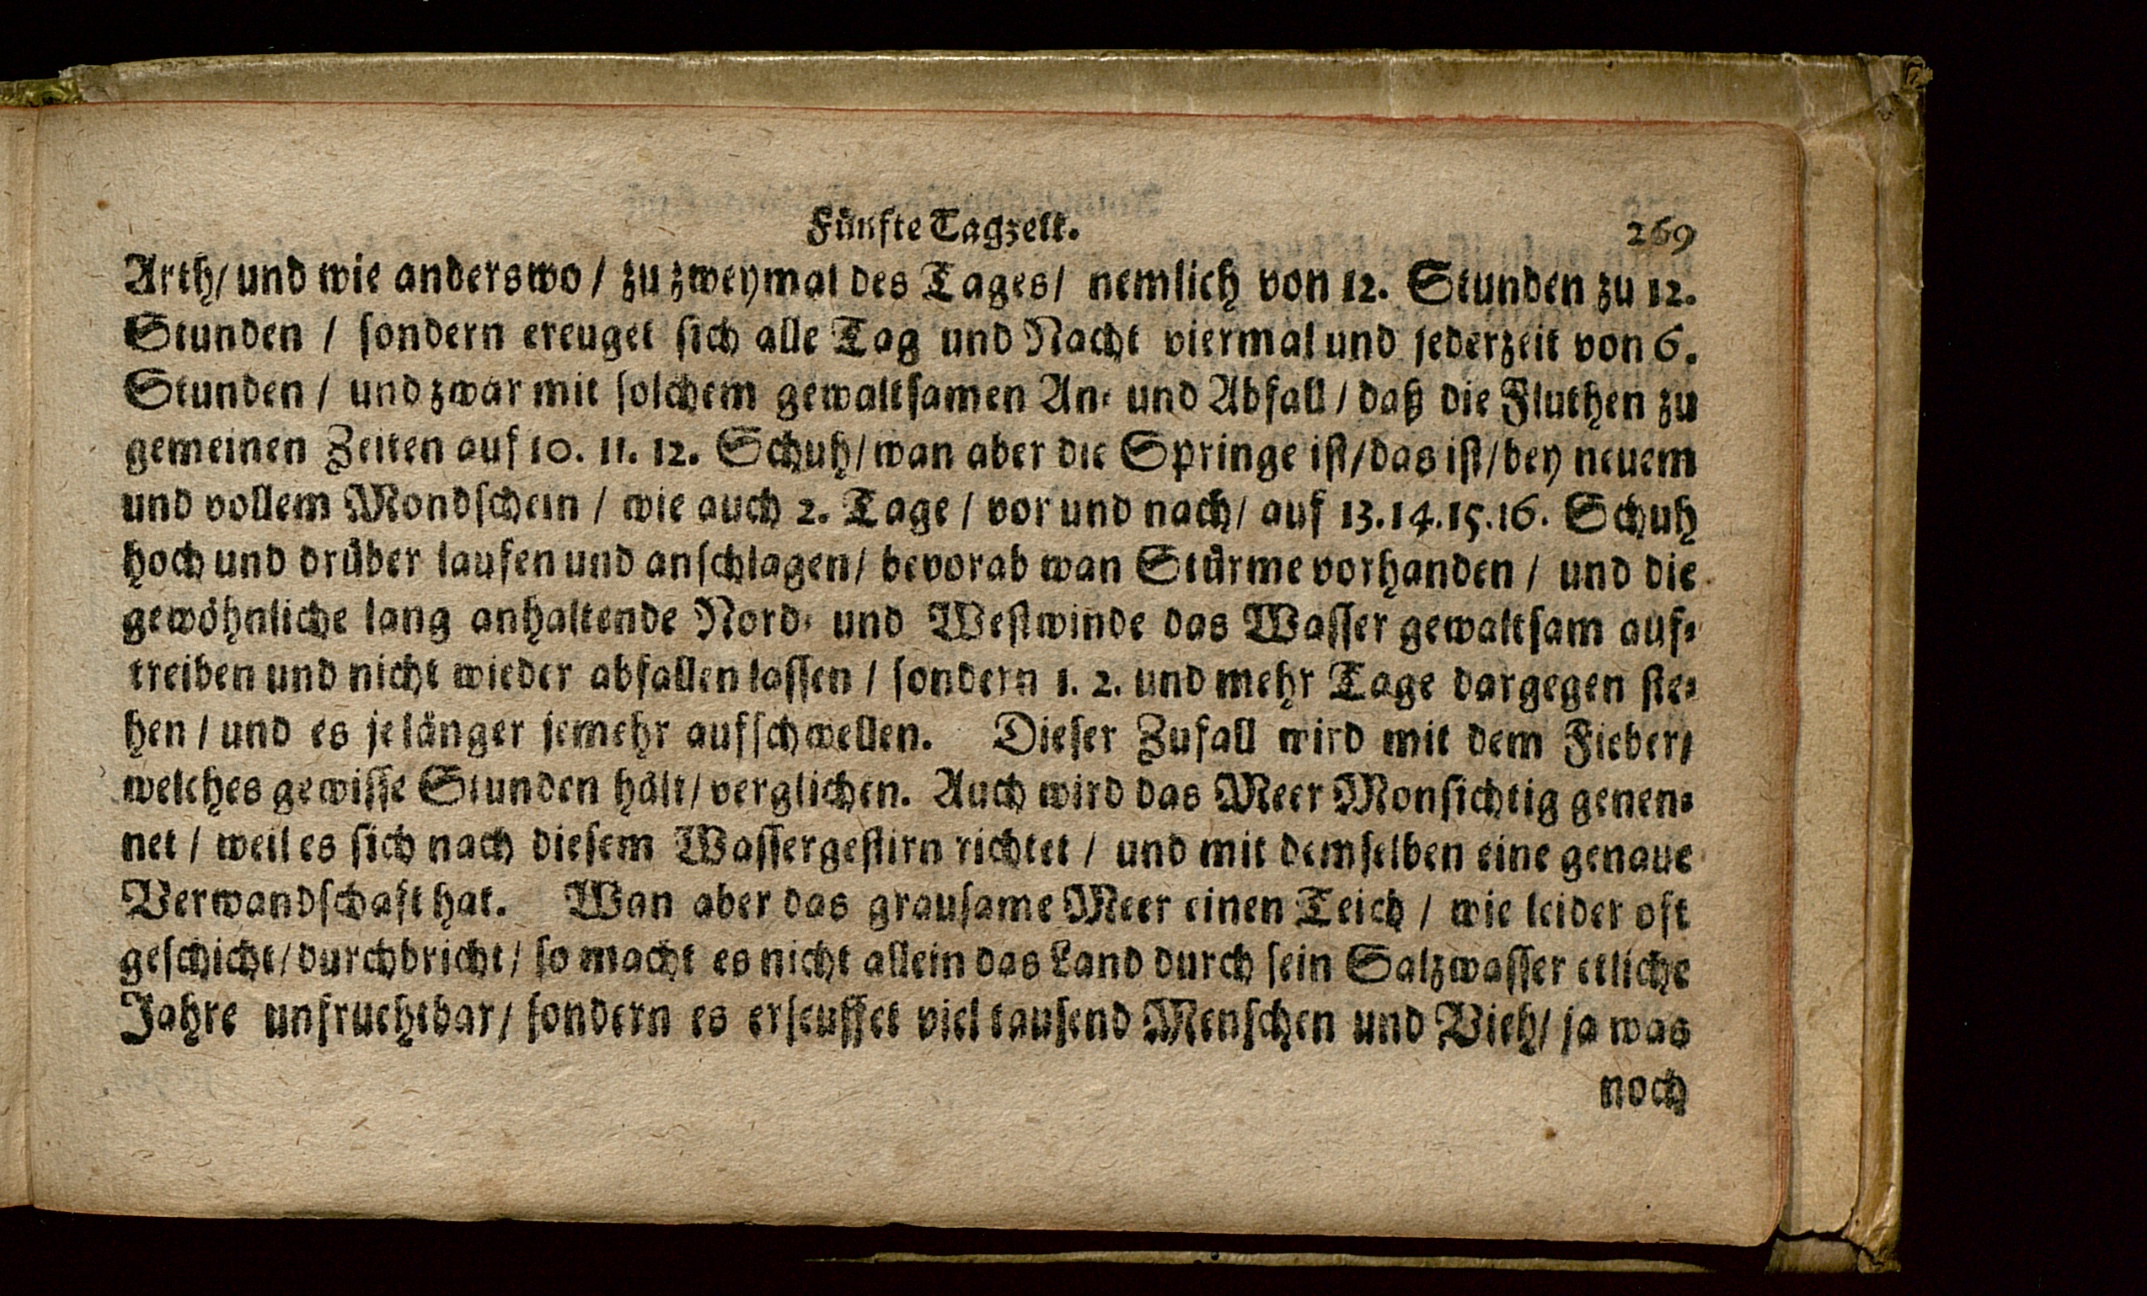 Fünfte Tagzeit. 269
Arth/ und wie anderswo / zu zweymal des Tages/ nemlich von 12. Stunden zu 12.
Stunden / sondern ereuget sich alle Tag und Nacht viermal und jederzeit von 6.
Stunden / und zwar mit solchem gewaltsamen An- und Abfall / daß die Fluthen zu
gemeinen Zeiten auf 10. 11. 12. Schuh/ wan aber die Springe ist/ das ist/ bey neuem
und vollem Mondschein / wie auch 2. Tage / vor und nach/ auf 13. 14. 15. 16. Schuh
hoch und drüber laufen und anschlagen/ bevorab wan Stürme vorhanden / und die
gewöhnliche lang anhaltende Nord- und Westwinde das Wasser gewaltsam auf-
treiben und nicht wieder abfallen lassen / sondern 1. 2. und mehr Tage dargegen ste-
hen / und es je länger jemehr aufschwellen. Dieser Zufall wird mit dem Fieber/
welches gewisse Stunden hält/ verglichen. Auch wird das Meer Monsichtig genen-
net / weil es sich nach diesem Wassergestirn richtet / und mit demselben eine genaue
Verwandschaft hat. Wan aber das grausame Meer einen Teich / wie leider oft
geschicht/ durchbricht/ so macht es nicht allein das Land durch sein Salzwasser etliche
Jahre unfruchtbar/ sondern es erseuffet viel tausend Menschen und Vieh/ ja was
noch